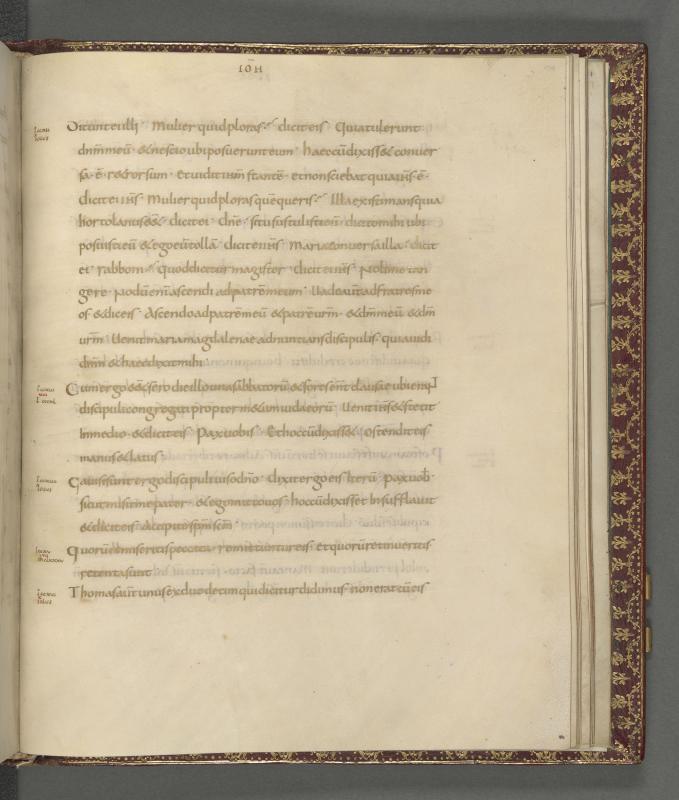 IOH
Dicunt ei illi · Mulier quid ploras · dicit eis · Quia tulerunt
dnm meū · & nescio ubi posuerunt eum · haec cū dixiss& conuer
sa · ē · retrorsum · et uidit ihm stantē · et non sciebat quia ihs · ē ·
dicit ei ihs · Mulier quid ploras quē queris · Illa existimans quia
hortolanus ess& · dicit ei · dne · si tu sustulisti eū · dicito mihi ubi
posuisti eū & ego eū tollā · dicit ei ihs · Maria conuersa illa · dicit
ei · rabboni · quod dicitur magister · dicit ei ihs · Noli me tan
gere · Nondū enī ascendi ad patrē meum · Uade aut ad fratres me
os & dic eis · Ascendo ad patrē meū & patrē urm · & dm meū & dm
urm · Uenit maria magdalenae adnuntians discipulis · quia uidi
dnm & haec dixit mihi
Cum ergo ess& sero die illo una sabbatorū & fores ent clausae ubi
discipuli congregati propter m&um iudaeorū · Uenit ihs & st&it
In medio · & dicit eis · Pax uobis · Et hoc cū dixiss& · Ostendit eis
manus & latus
Gauisi sunt ergo discipuli uiso dno · dixit ergo eis Iterū · Pax uob ·
sicut misit me pater · & ego mitto uos · hoc cū dixisset Insufflauit
& dicit eis · Accipite spm scm ·
Quorū remiseritis peccata · remittuntur eis · et quorū retinueritis
retenta sunt
Thomas aut unus ex duodecim qui dicitur didimus · non erat cū eis